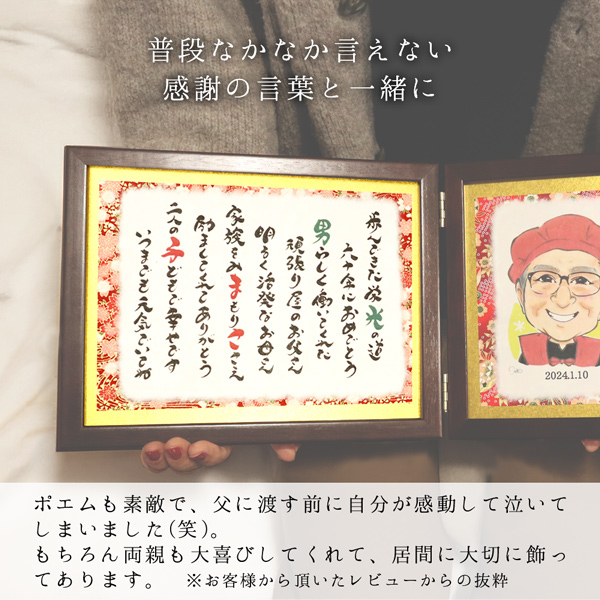 普段なかなか言えない
感謝の言葉と一緒に
歩んできた栄光の道
六十金におめでとう
男らしく働いてくれた
頑張り屋のお父さん
明るく活発なお母さん
家族をみまもりここさえ
励ましてくれてありがとう
二人の子どもで幸せです
いつまでも元気でいてね
2024.1.10
ポエムも素敵で、父に渡す前に自分が感動して泣いて
しまいました(笑)。
もちろん両親も大喜びしてくれて、居間に大切に飾っ
てあります。 ※お客様から頂いたレビューからの抜粋